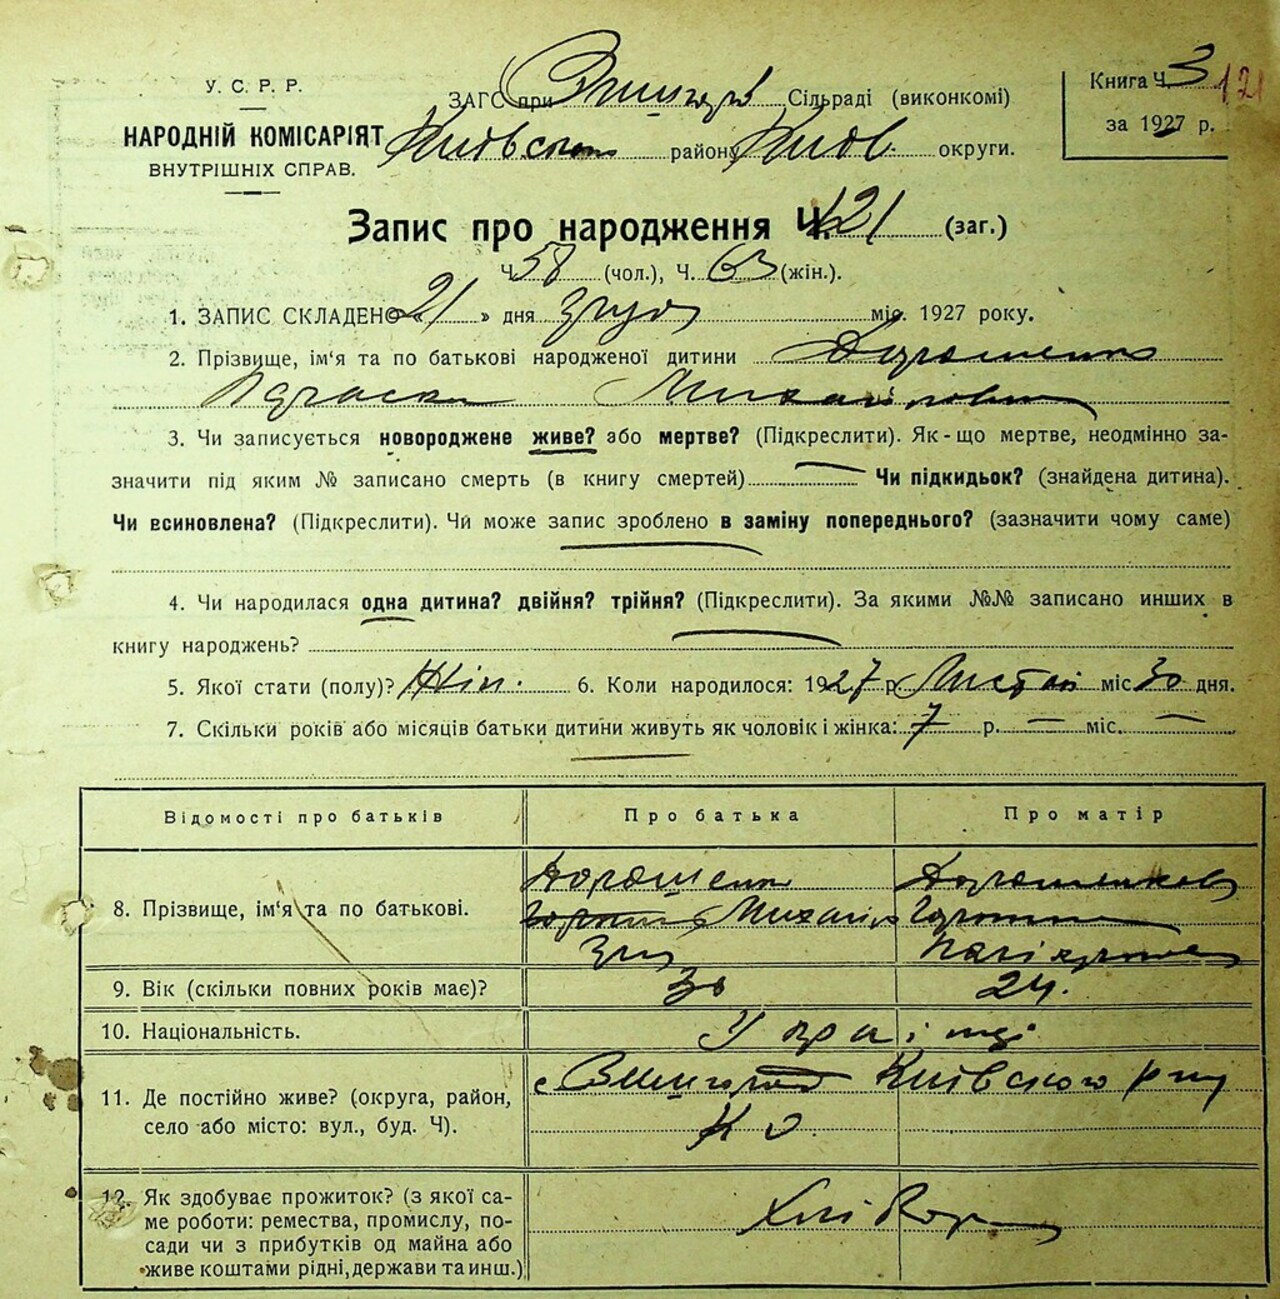 У. С. Р. Р.
НАРОДНІЙ КОМІСАРІЯТ
ВНУТРІШНІХ СПРАВ.
ЗАГС при Сільраді (виконкомі)
Київськ району Київ округи.
Книга Ч. 3 121
за 1927 р.
Запис про народження Ч. 121 (заг.)
Ч 58 (чол.), Ч. 63 (жін.).
1. ЗАПИС СКЛАДЕНО « 21 » дня грудня міс. 1927 року.
2. Прізвище, ім'я та по батькові народженої дитини Дорошенко
Параска Михайловна
3. Чи записується новороджене живе? або мертве? (Підкреслити). Як-що мертве, неодмінно за-
значити під яким № записано смерть (в книгу смертей) Чи підкидьок? (знайдена дитина).
Чи всиновлена? (Підкреслити). Чи може запис зроблено в заміну попереднього? (зазначити чому саме)
4. Чи народилася одна дитина? двійня? трійня? (Підкреслити). За якими №№ записано инших в
книгу народжень?
5. Якої стати (полу)? Жін. 6. Коли народилося: 1927 р. Листоп міс. 30 дня.
7. Скільки років або місяців батьки дитини живуть як чоловік і жінка: 7 р. — міс. —
Відомості про батьків Про батька Про матір
8. Прізвище, ім'я та по батькові. Дорошенко Михайло Дорошенкова
9. Вік (скільки повних років має)? 30 24.
10. Національність. Українці
11. Де постійно живе? (округа, район,
село або місто: вул., буд. Ч). с Вишгород Київського р-ну
К О.
12. Як здобуває прожиток? (з якої са-
ме роботи: ремества, промислу, по-
сади чи з прибутків од майна або
живе коштами рідні, держави та инш.) Хлібороб